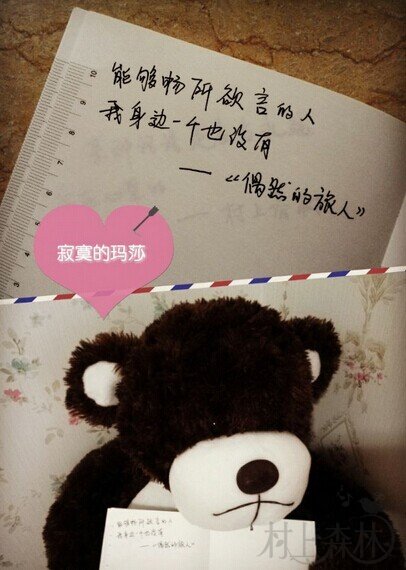 能够畅所欲言的人
我身边一个也没有
——“偶然的旅人”
10
9
8
7
6
5
4
3
寂寞的玛莎
能够畅所欲言的人
我身边一个也没有
——“偶然的旅人”
村上森林